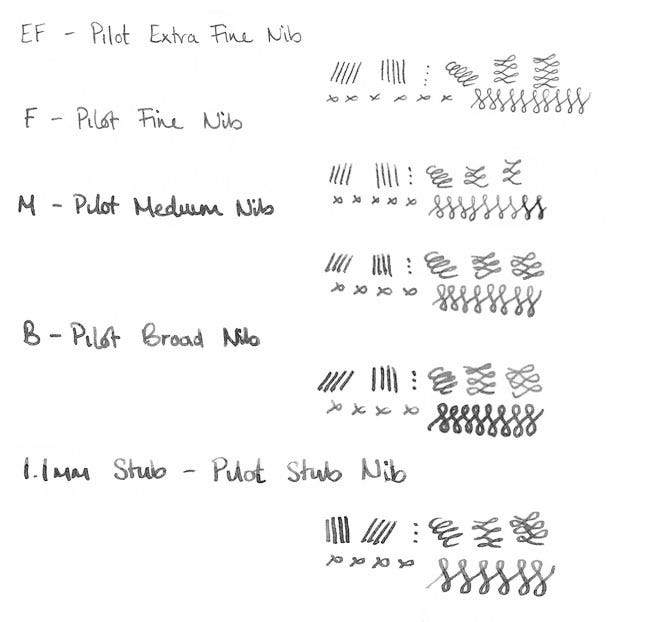 EF - Pilot Extra Fine Nib
F - Pilot Fine Nib
M - Pilot Medium Nib
B - Pilot Broad Nib
1.1mm Stub - Pilot Stub Nib